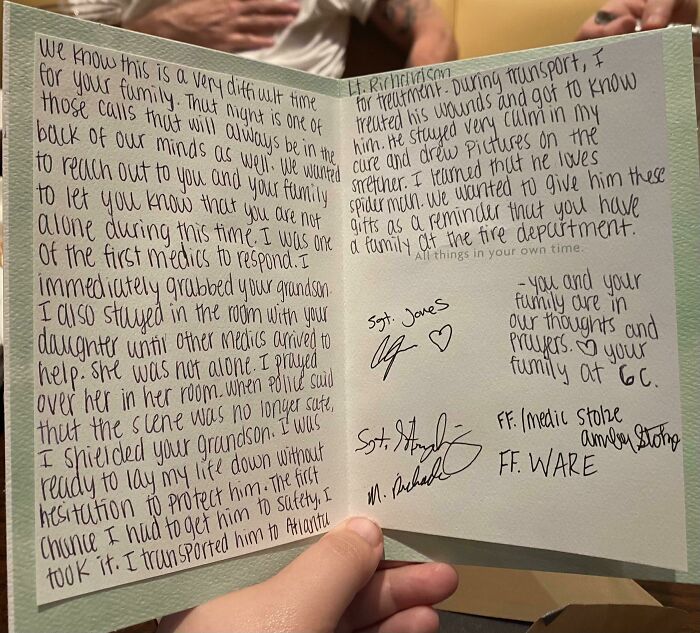 We know this is a very difficult time
for your family. That night is one of
those calls that will always be in the
back of our minds as well. We wanted
to reach out to you and your family
to let you know that you are not
alone during this time. I was one
of the first medics to respond. I
immediately grabbed your grandson.
I also stayed in the room with your
daughter until other medics arrived to
help. She was not alone. I prayed
over her in her room. When police said
that the scene was no longer safe,
I shielded your grandson. I was
ready to lay my life down without
hesitation to protect him. The first
chance I had to get him to safety, I
took it. I transported him to Atlanta
Lt. Richardson
for treatment. During transport, I
treated his wounds and got to know
him. He stayed very calm in my
care and drew pictures on the
stretcher. I learned that he loves
spiderman. We wanted to give him these
gifts as a reminder that you have
a family at the fire department.
All things in your own time.
- you and your
family are in
our thoughts and
prayers. ♡ your
family at 6 C.
Sgt. Jones
♡
Sgt.
M.
FF./medic Stolze
FF. WARE